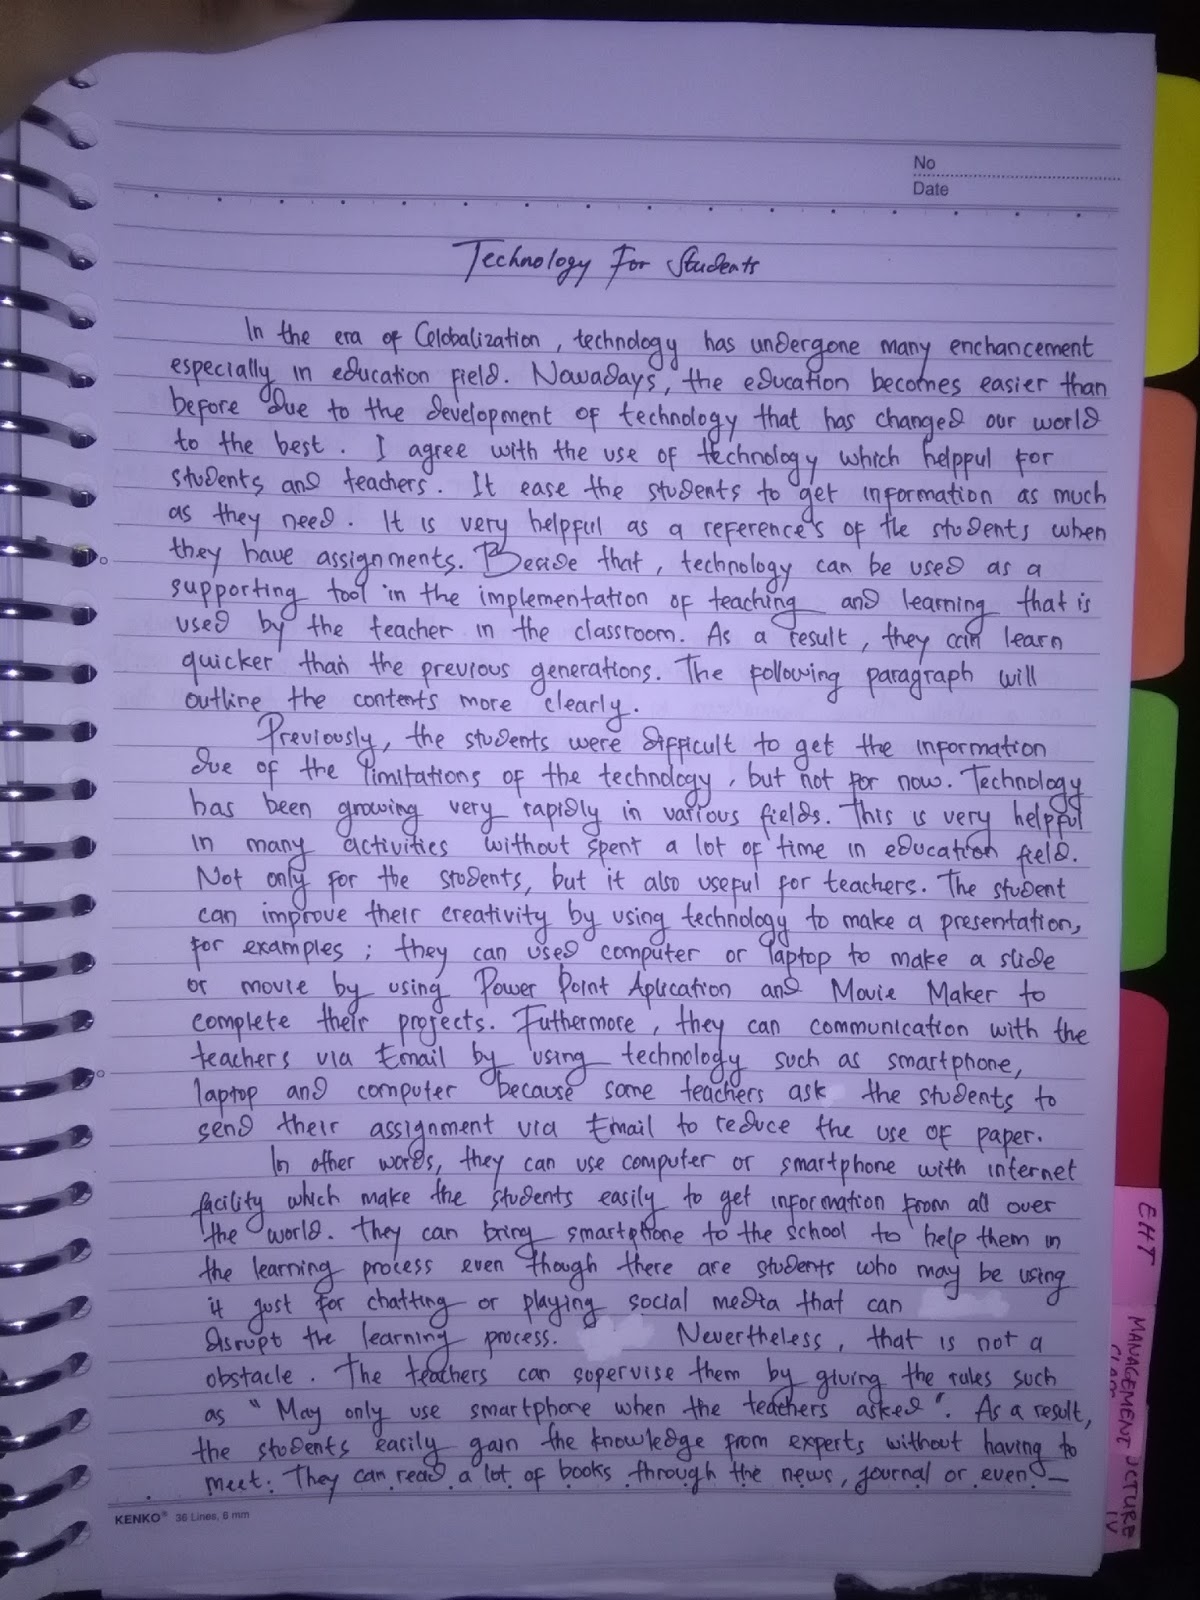 No
Date
Technology For Students
In the era of Globalization, technology has undergone many enchancement
especially in education field. Nowadays, the education becomes easier than
before due to the development of technology that has changed our world
to the best. I agree with the use of technology which helpful for
students and teachers. It ease the students to get information as much
as they need. It is very helpful as a reference's of the students when
they have assignments. Beside that, technology can be used as a
supporting tool in the implementation of teaching and learning that is
used by the teacher in the classroom. As a result, they can learn
quicker than the previous generations. The following paragraph will
outline the contents more clearly.
Previously, the students were difficult to get the information
due of the limitations of the technology, but not for now. Technology
has been growing very rapidly in various fields. This is very helpful
in many activities without spent a lot of time in education field.
Not only for the students, but it also useful for teachers. The student
can improve their creativity by using technology to make a presentation,
for examples; they can used computer or laptop to make a slide
or movie by using Power Point Aplication and Movie Maker to
complete their projects. Futhermore, they can communication with the
teachers via Email by using technology such as smartphone,
laptop and computer because some teachers ask the students to
send their assignment via Email to reduce the use of paper.
In other words, they can use computer or smartphone with internet
facility which make the students easily to get information from all over
the world. They can bring smartphone to the school to help them in
the learning process even though there are students who may be using
it just for chatting or playing social media that can
disrupt the learning process. Nevertheless, that is not a
obstacle. The teachers can supervise them by giving the rules such
as "May only use smartphone when the teachers asked". As a result,
the students easily gain the knowledge from experts without having to
meet. They can read a lot of books through the news, journal or even
KENKO® 36 Lines, 6 mm
EHT
MANAGEMENT
IV